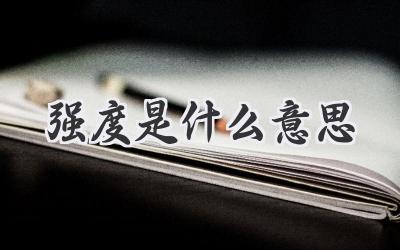 强度是什么意思